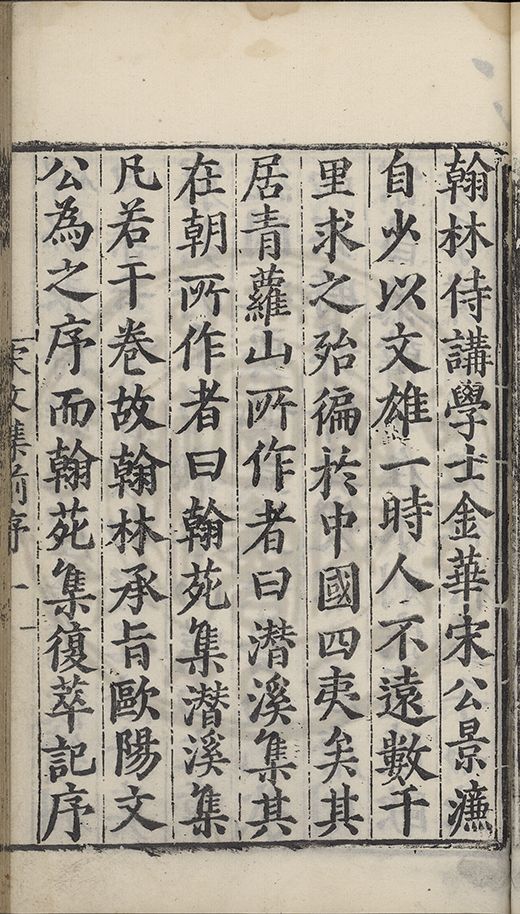 翰林侍講學士金華宋公景濂
自少以文雄一時人不遠數千
里求之殆徧於中國四夷矣其
居青蘿山所作者曰潛溪集其
在朝所作者曰翰苑集潛溪集
凡若干卷故翰林承旨歐陽文
公為之序而翰苑集復萃記序
宋文集前序 一